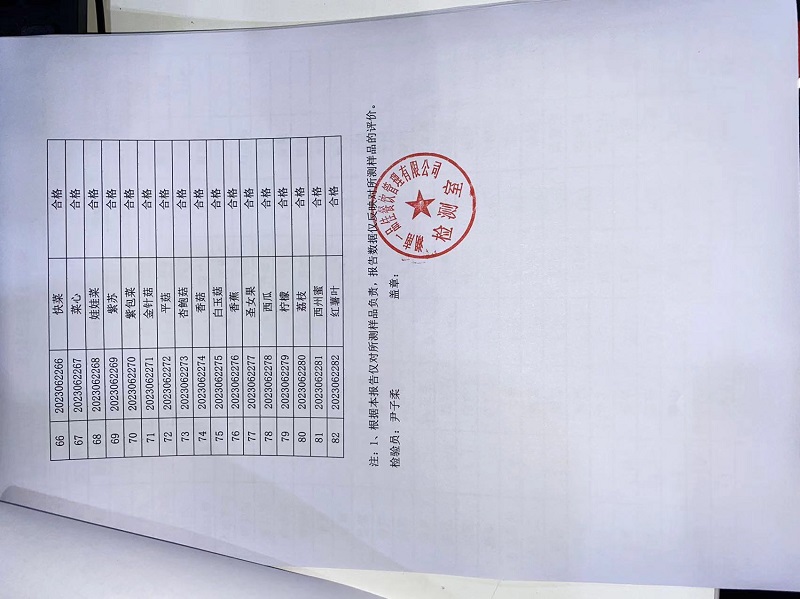 66 2023062266 快菜 合格
67 2023062267 菜心 合格
68 2023062268 娃娃菜 合格
69 2023062269 紫苏 合格
70 2023062270 紫包菜 合格
71 2023062271 金针菇 合格
72 2023062272 平菇 合格
73 2023062273 杏鲍菇 合格
74 2023062274 香菇 合格
75 2023062275 白玉菇 合格
76 2023062276 香蕉 合格
77 2023062277 圣女果 合格
78 2023062278 西瓜 合格
79 2023062279 柠檬 合格
80 2023062280 荔枝 合格
81 2023062281 西州蜜 合格
82 2023062282 红薯叶 合格
注：1、根据本报告仅对所测样品负责，报告数据仅反映对所测样品的评价。
检验员：尹子柔 盖章：
餐饮管理有限公司
检测室